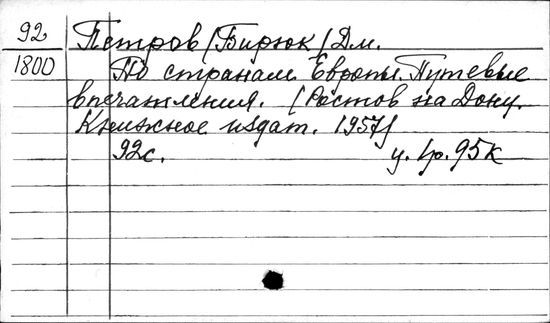 92 Петров /Бирюк/ Дм.
1800 По странам Европы. Путевые
впечатления. [Ростов на Дону.
Книжное издат. 1957]
92с. ц. 1р. 95к